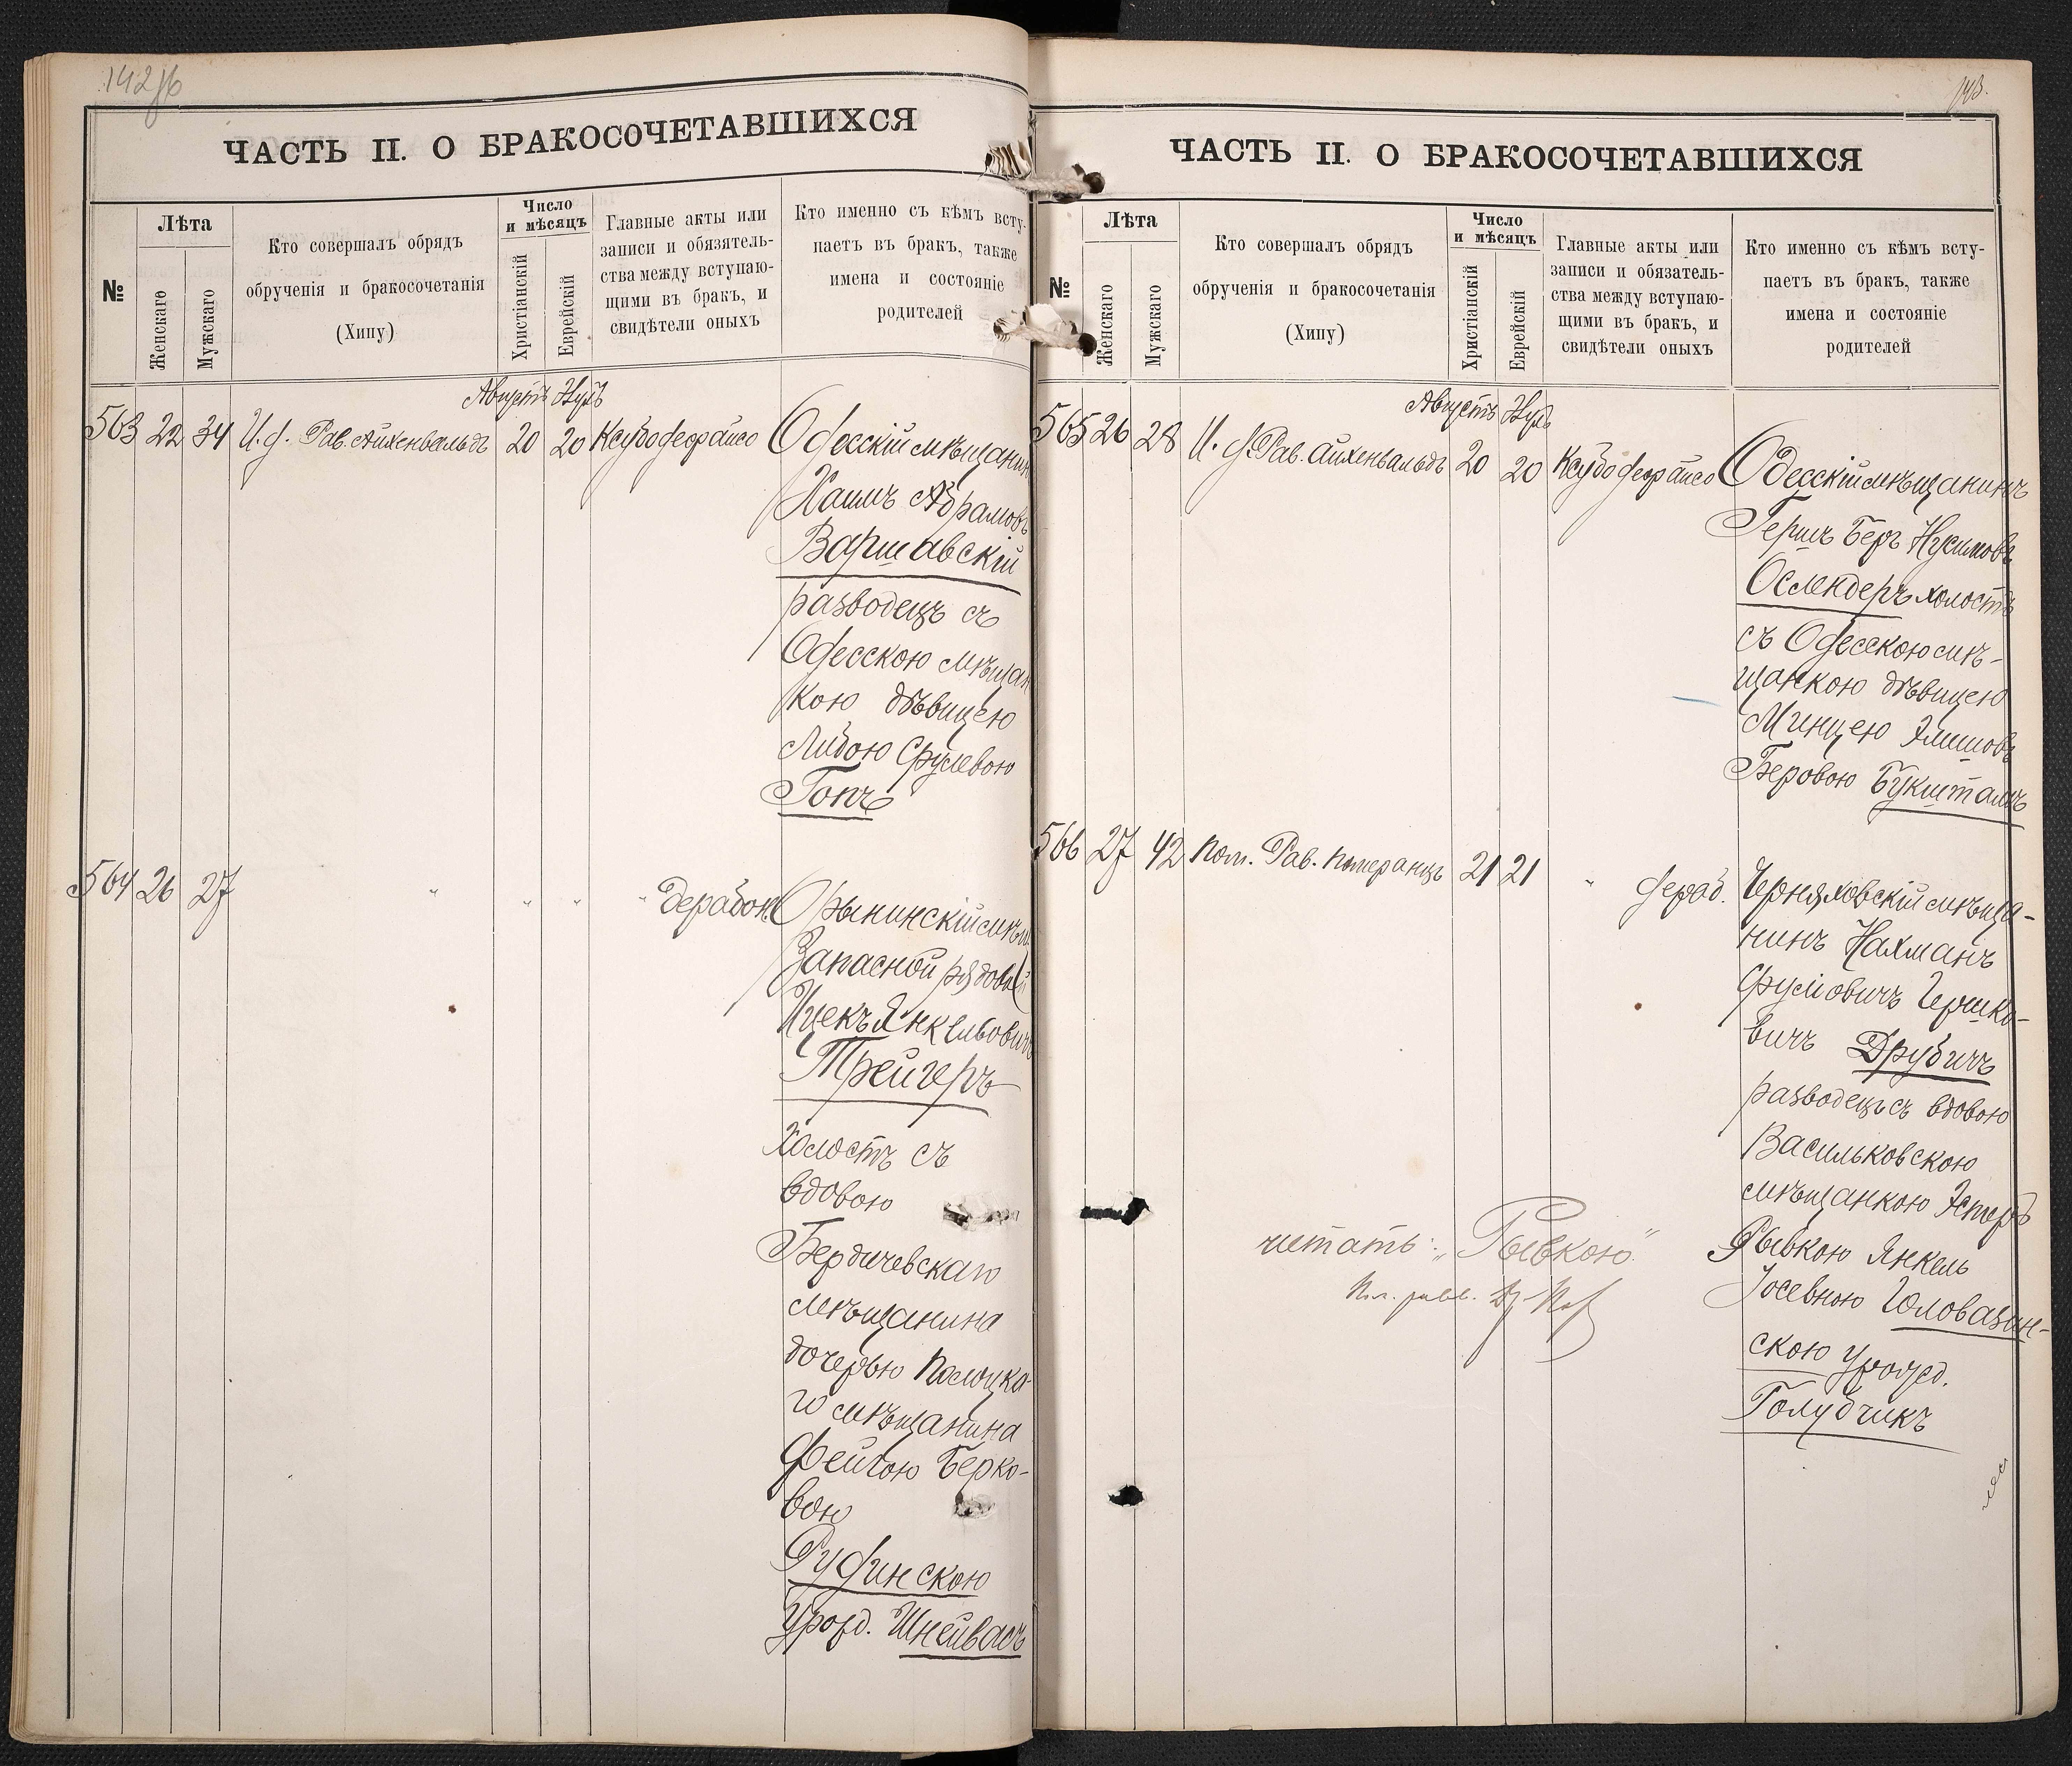 142об
ЧАСТЬ II. О БРАКОСОЧЕТАВШИХСЯ
№
Лѣта
Женскаго
Мужскаго
Кто совершалъ обрядъ
обрученія и бракосочетанія
(Хипу)
Число
и мѣсяцъ
Христіанскій
Еврейскій
Главные акты или
записи и обязатель-
ства между вступаю-
щими въ бракъ, и
свидѣтели оныхъ
Кто именно съ кѣмъ всту-
паетъ въ бракъ, также
имена и состояніе
родителей
Августъ
563 22 34 И. д. Рав. Айхенвальдъ 20 20 Ксубо
Одесскій мѣщанинъ
Хаимъ Абрамовъ
Варшавскій
разводецъ съ
Одесскою мѣщан
кою дѣвицею
Либою Срулевою
Гопъ
564 26 27 " " " "
Запасной рядовой
Ицекъ Янкелевовичъ
Трейгеръ
Холостъ съ
вдовою
Бердичевскаго
мѣщанина
дочерью
го мѣщанина
Фейгою Берко-
вою
Рудинскою
Урожд. Шнейвасъ
143.
ЧАСТЬ II. О БРАКОСОЧЕТАВШИХСЯ
№
Лѣта
Женскаго
Мужскаго
Кто совершалъ обрядъ
обрученія и бракосочетанія
(Хипу)
Число
и мѣсяцъ
Христіанскій
Еврейскій
Главные акты или
записи и обязатель-
ства между вступаю-
щими въ бракъ, и
свидѣтели оныхъ
Кто именно съ кѣмъ всту-
паетъ въ бракъ, также
имена и состояніе
родителей
Августъ
565 26 28 И. д. Рав. Айхенвальдъ 20 20 Ксубо
Одесскій мѣщанинъ
Гершъ Беръ Нусимовъ
Ослендеръ холостъ
съ Одесскою мѣ-
щанкою дѣвицею
Минцею
Беровою Букшталъ
566 27 42 Пом. Рав. Померанцъ 21 21 "
Черняховскій мѣща-
нинъ Нахманъ
Срулiовичъ Гершко-
вичъ Друбичъ
разводецъ съ вдовою
Васильковскою
мѣщанкою Эстеръ
Рывкою Янкель
Іосевною Головазин-
скою урожд.
Голубчикъ
читать: „Рывкою"